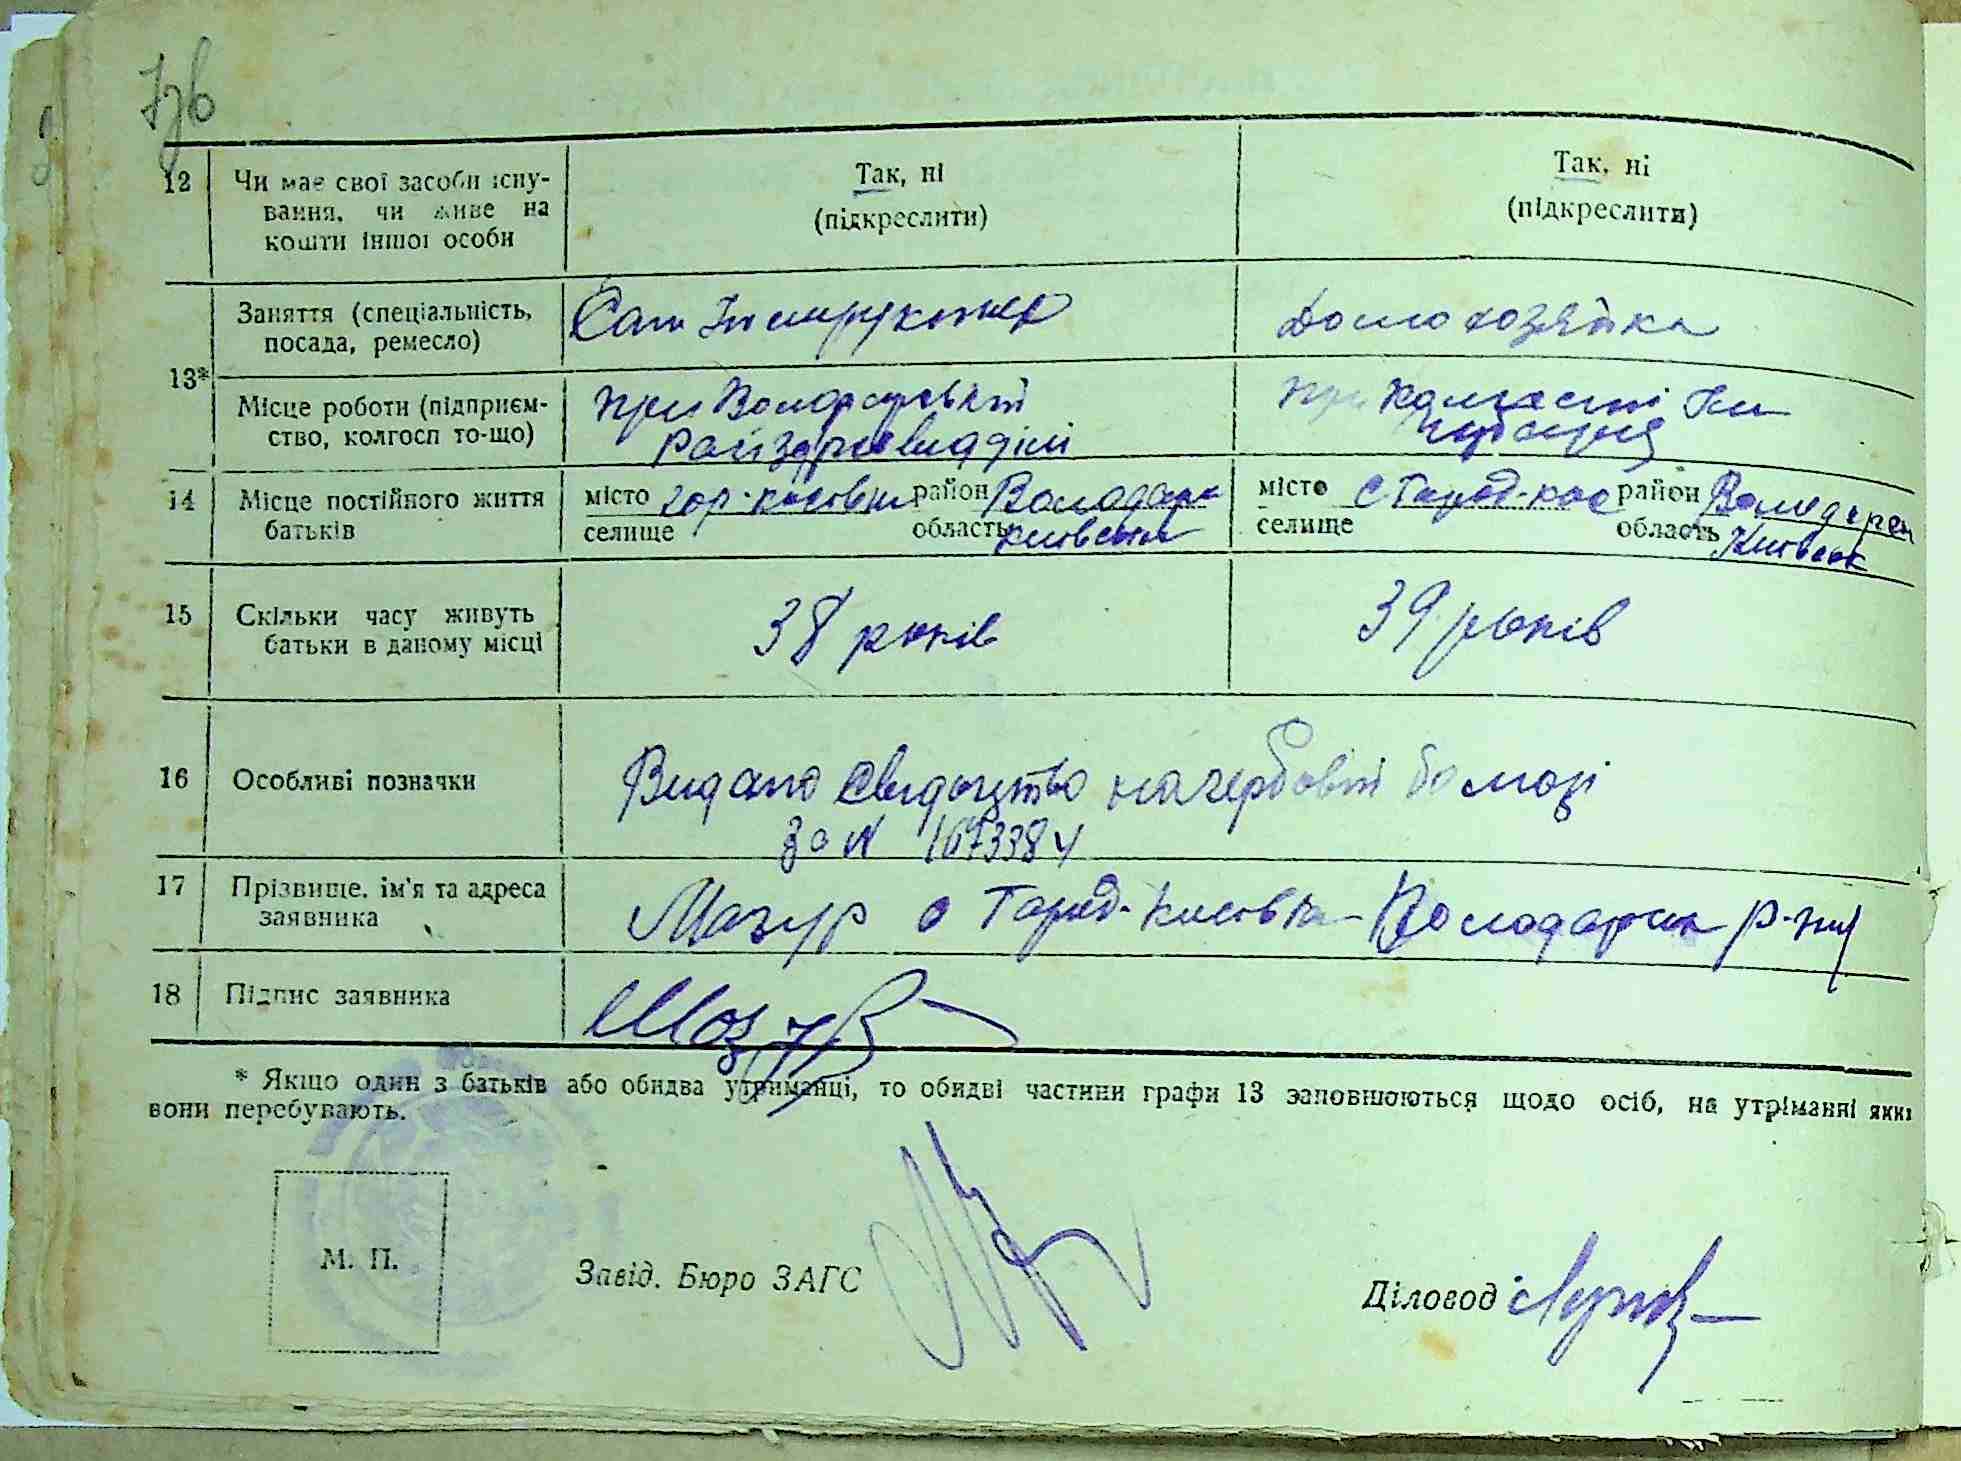 12 Чи має свої засоби існу-
вання, чи живе на
кошти іншої особи
Так, ні
(підкреслити)
Так, ні
(підкреслити)
13*
Заняття (спеціальність,
посада, ремесло)
Сан
Домохозяйка
Місце роботи (підприєм-
ство, колгосп то-що)
при
райздороввідділі
при
14 Місце постійного життя
батьків
місто гор-косівка район Володарск
селище область київська
місто с Город-кос район Володарск
селище область Київськ
15 Скільки часу живуть
батьки в даному місці
38 років
39 років
16 Особливі позначки
Видано свидоцтво на гербовій бомазі
за N 1673384
17 Прізвище, ім'я та адреса
заявника
Мазур с Город-Косівка Володарск р-ну
18 Підпис заявника
Мазур
* Якщо один з батьків або обидва утриманці, то обидві частини графи 13 заповнюються щодо осіб, на утриманні яких
вони перебувають.
М. П.
Завід. Бюро ЗАГС
Діловод